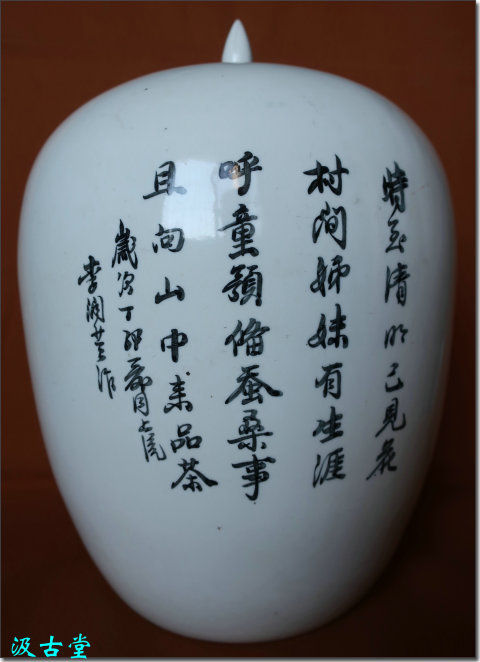 時至清明已見花
村澗姊妹有生涯
呼童預備蚕桑事
且向山中来品茶
歲次丁卯月上浣
李潤作
汲古堂